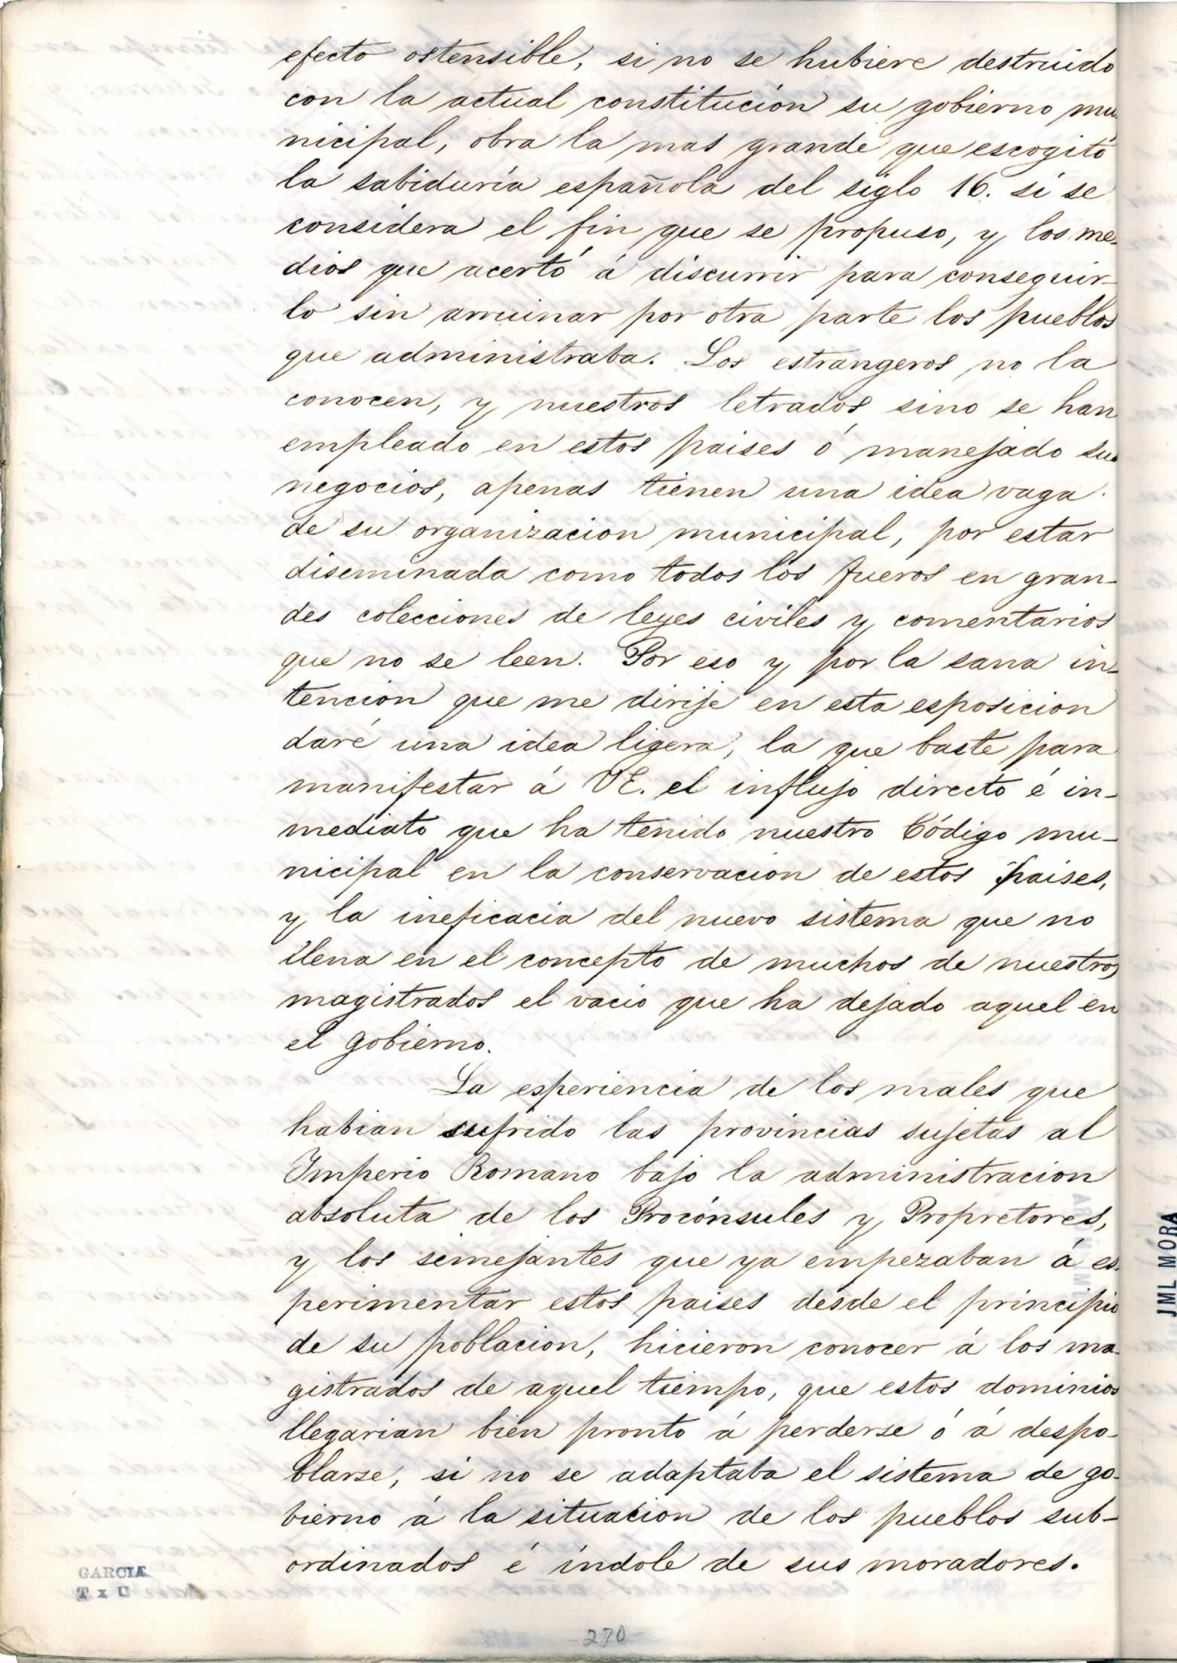 efecto ostensible, si no se hubiere destruido
con la actual constitucion su gobierno mu
nicipal, obra la mas grande que escogitó
la sabiduría española del siglo 16. si se
considera el fin que se propuso, y los me-
dios que acertó á discurrir para conseguir-
lo sin arruinar por otra parte los pueblos
que administraba. Los estrangeros no la
conocen, y nuestros letrados sino se han
empleado en estos paises ó manejado sus
negocios, apenas tienen una idea vaga
de su organizacion municipal, por estar
diseminada como todos los fueros en gran-
des colecciones de leyes civiles y comentarios
que no se leen. Por eso y por la sana in-
tencion que me dirije en esta esposicion
daré una idea ligera, la que baste para
manifestar á VE. el influjo directo é in-
mediato que ha tenido nuestro Código mu-
nicipal en la conservacion de estos paises,
y la ineficacia del nuevo sistema que no
llena en el concepto de muchos de nuestros
magistrados el vacio que ha dejado aquel en
el gobierno.
La esperiencia de los males que
habian sufrido las provincias sujetas al
Imperio Romano bajo la administracion
absoluta de los Procónsules y Propretores,
y los semejantes que ya empezaban á es-
perimentar estos paises desde el principio
de su poblacion, hicieron conocer á los ma-
gistrados de aquel tiempo, que estos dominios
llegarian bien pronto á perderse ó á despo-
blarse, si no se adaptaba el sistema de go-
bierno á la situacion de los pueblos sub-
ordinados é índole de sus moradores.
GARCIA
T x U
230
JML MORA